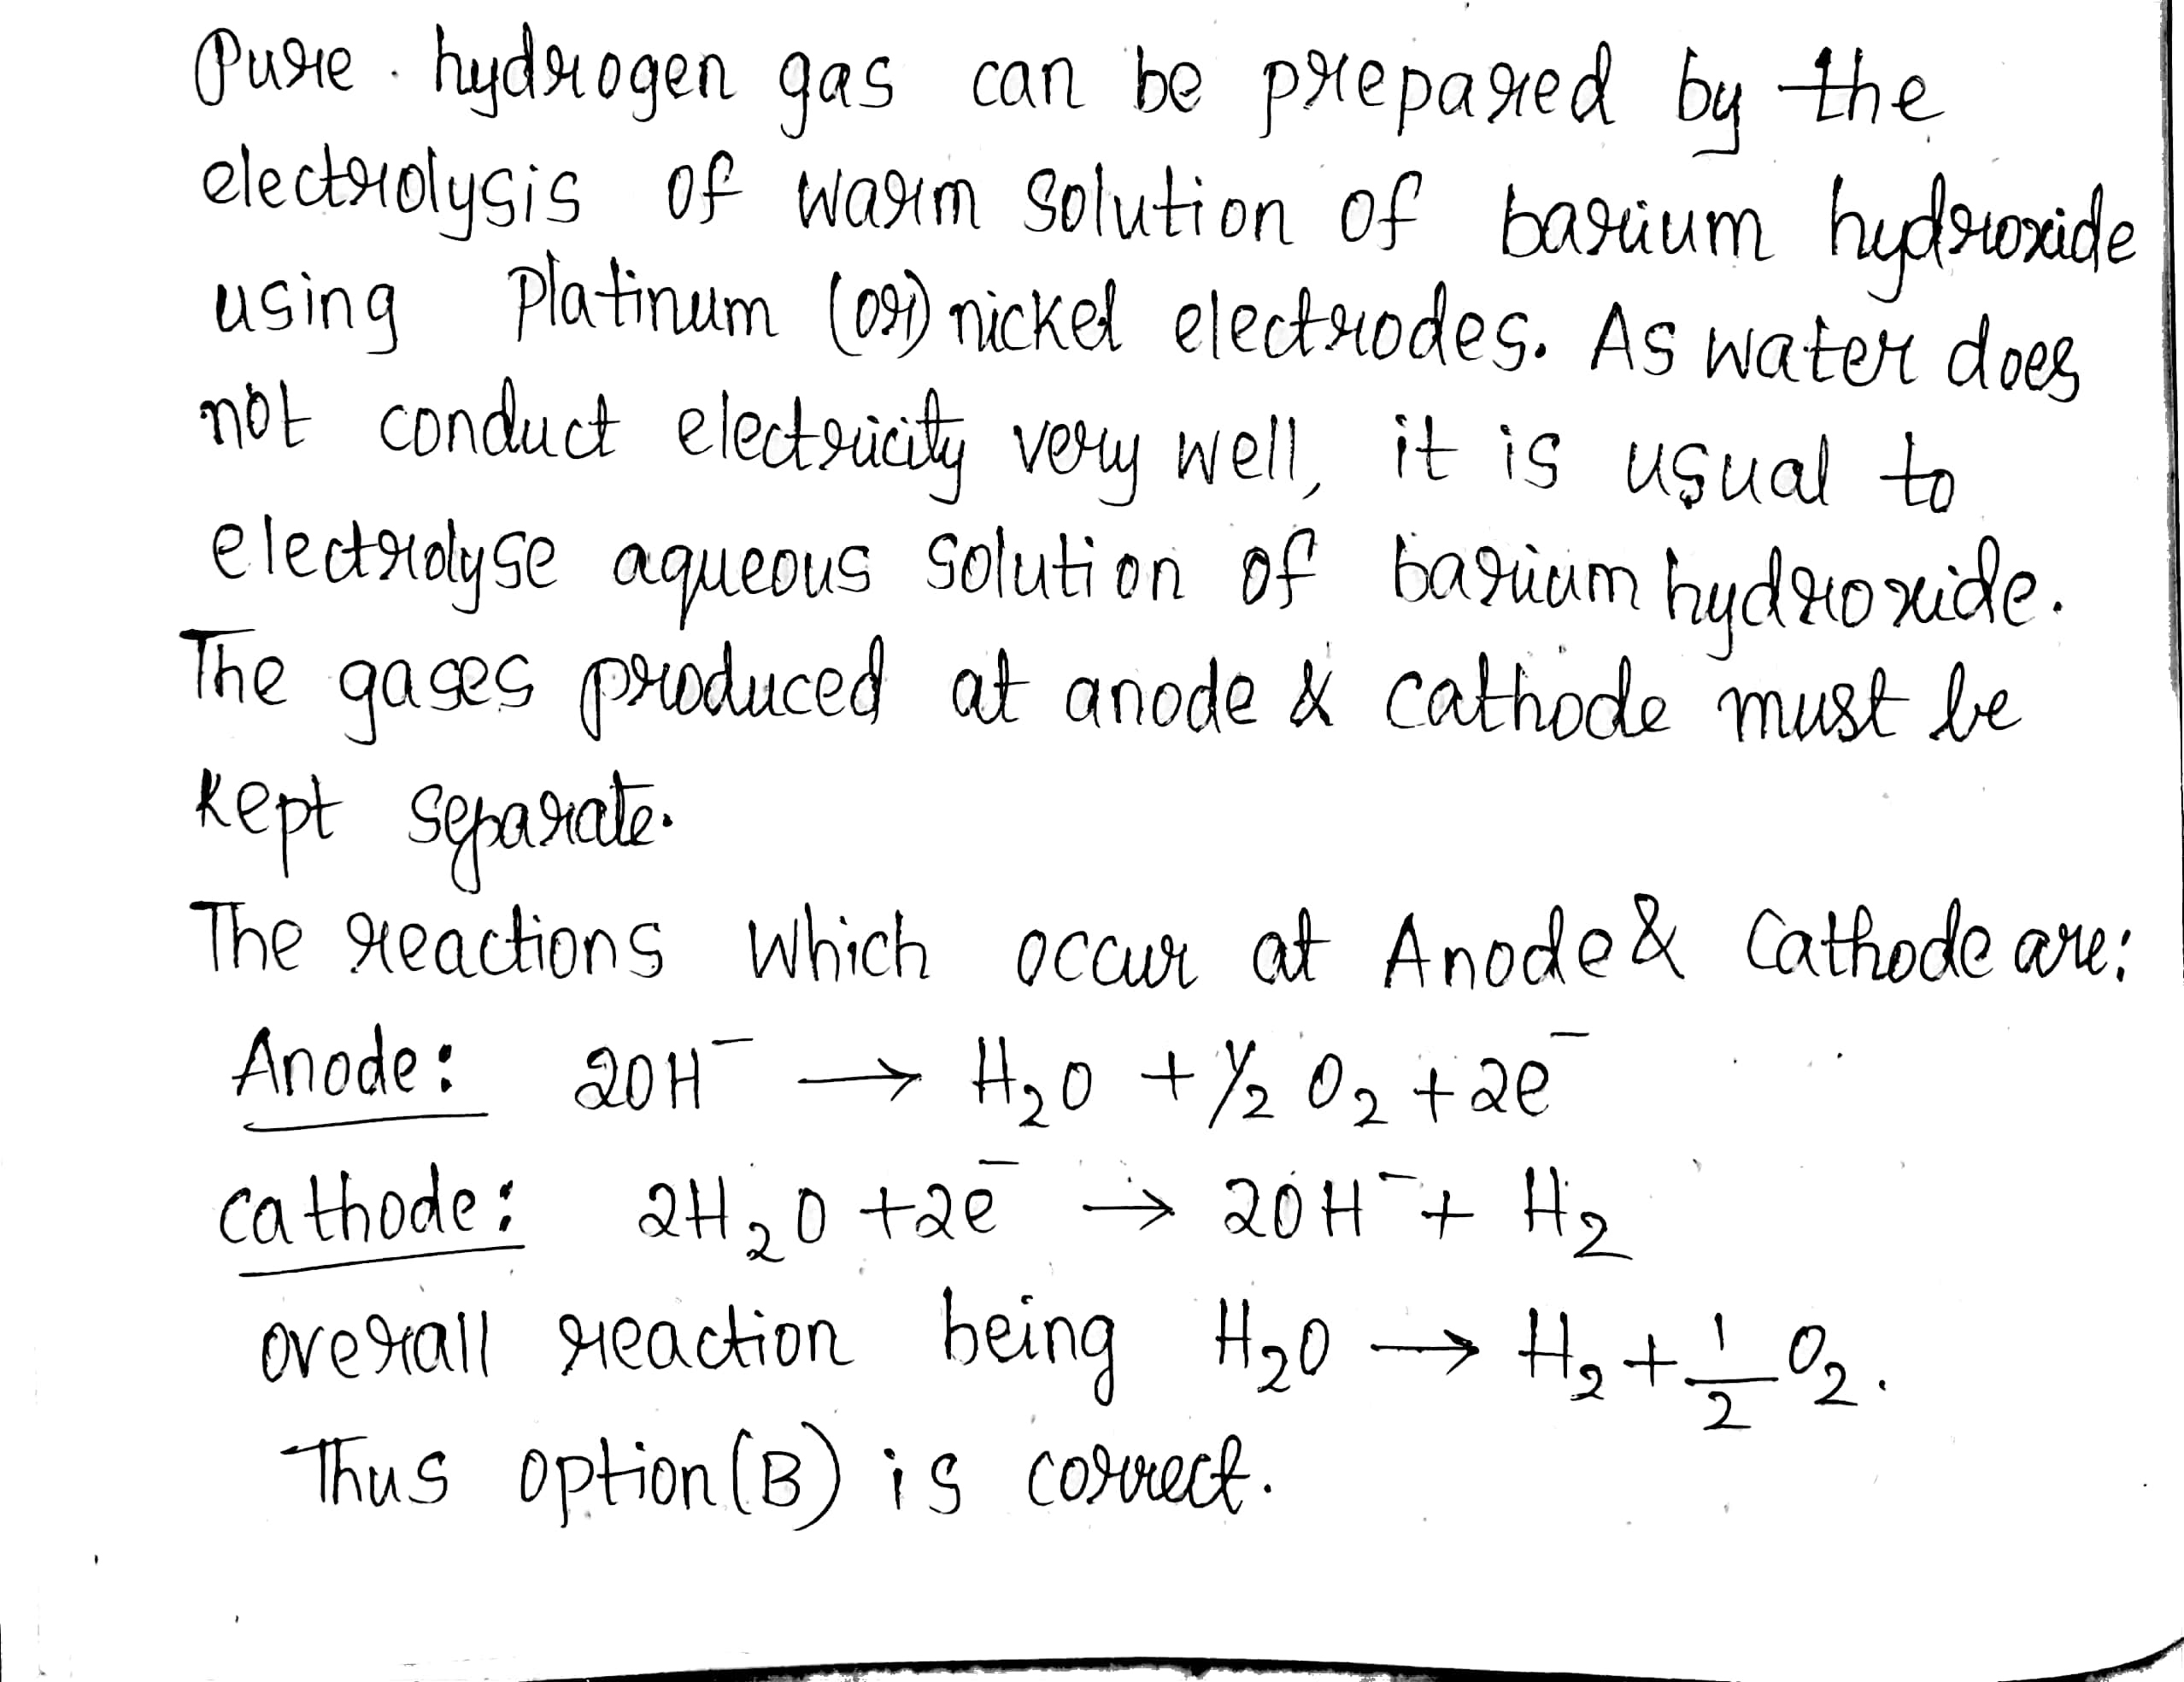 Pure hydrogen gas can be prepared by the
electrolysis of warm solution of barium hydroxide
using Platinum (or) nickel electrodes. As water does
not conduct electricity very well, it is usual to
electrolyse aqueous solution of barium hydroxide.
The gases produced at anode & cathode must be
kept separate.
The reactions which occur at Anode & Cathode are:
Anode: 2OH⁻ → H₂O + 1/2 O₂ + 2e⁻
cathode: 2H₂O + 2e⁻ → 2OH⁻ + H₂
overall reaction being H₂O → H₂ + 1/2 O₂.
Thus option (B) is correct.